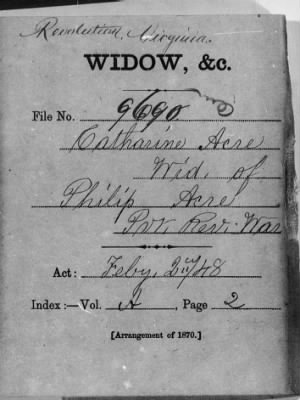 Revolution, Virginia.
WIDOW, &c.
File No. 9690
Catharine Acre
Wid. of
Philip Acre
Pvt. Rev. War
Act: Feby, 2nd/48
Index:—Vol. A, Page 2
[Arrangement of 1870.]